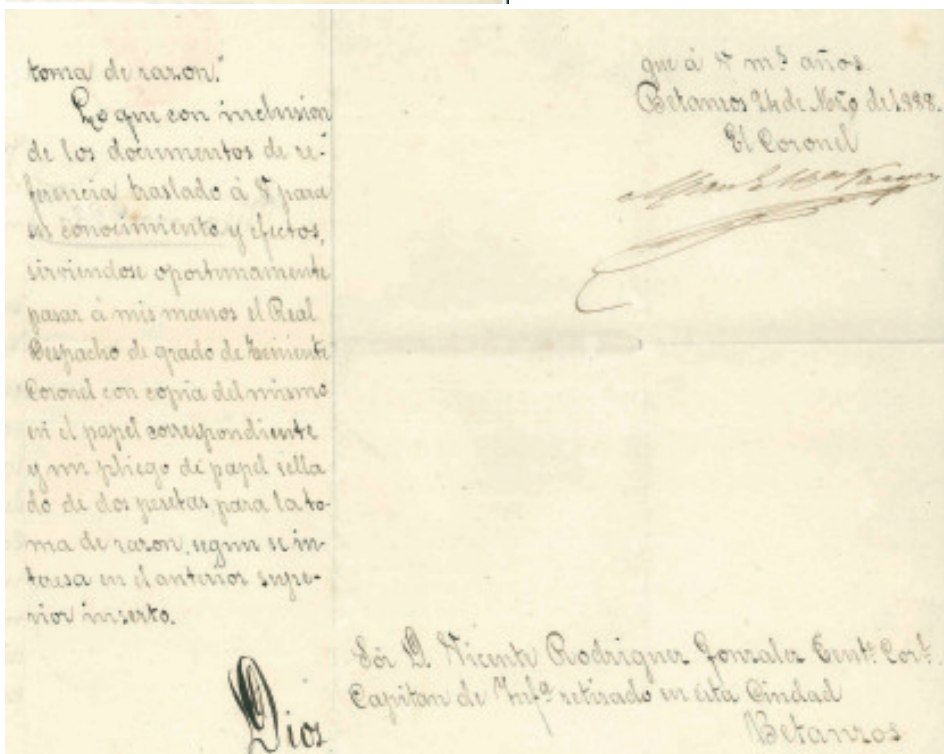 toma de razon."
Lo que con inclusion
de los documentos de re-
ferencia traslado á V para
su conocimiento y efectos,
sirviendose oportunamente
pasar á mis manos el Real
Despacho de grado de Teniente
Coronel con copia del mismo
en el papel correspondiente
y un pliego de papel sella
do de dos pesetas para la to-
ma de razon, segun se in-
teresa en el anterior supe-
rior inserto.
Dios
gue á V m.s años.
Betanzos 24 de de 1888.
El Coronel
Sor D. Vicente Rodriguez Gonzalez Tent.e Corl.
Capitan de Inf.a retirado en esta Ciudad
Betanzos